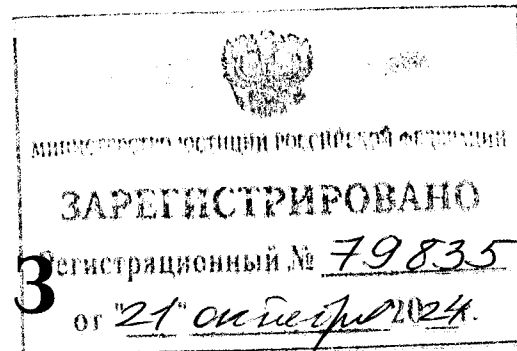 МИНИСТЕРСТВО ЮСТИЦИИ РОССИЙСКОЙ ФЕДЕРАЦИИ
ЗАРЕГИСТРИРОВАНО
З
Регистрационный № 79835
от "21" октября 2024.